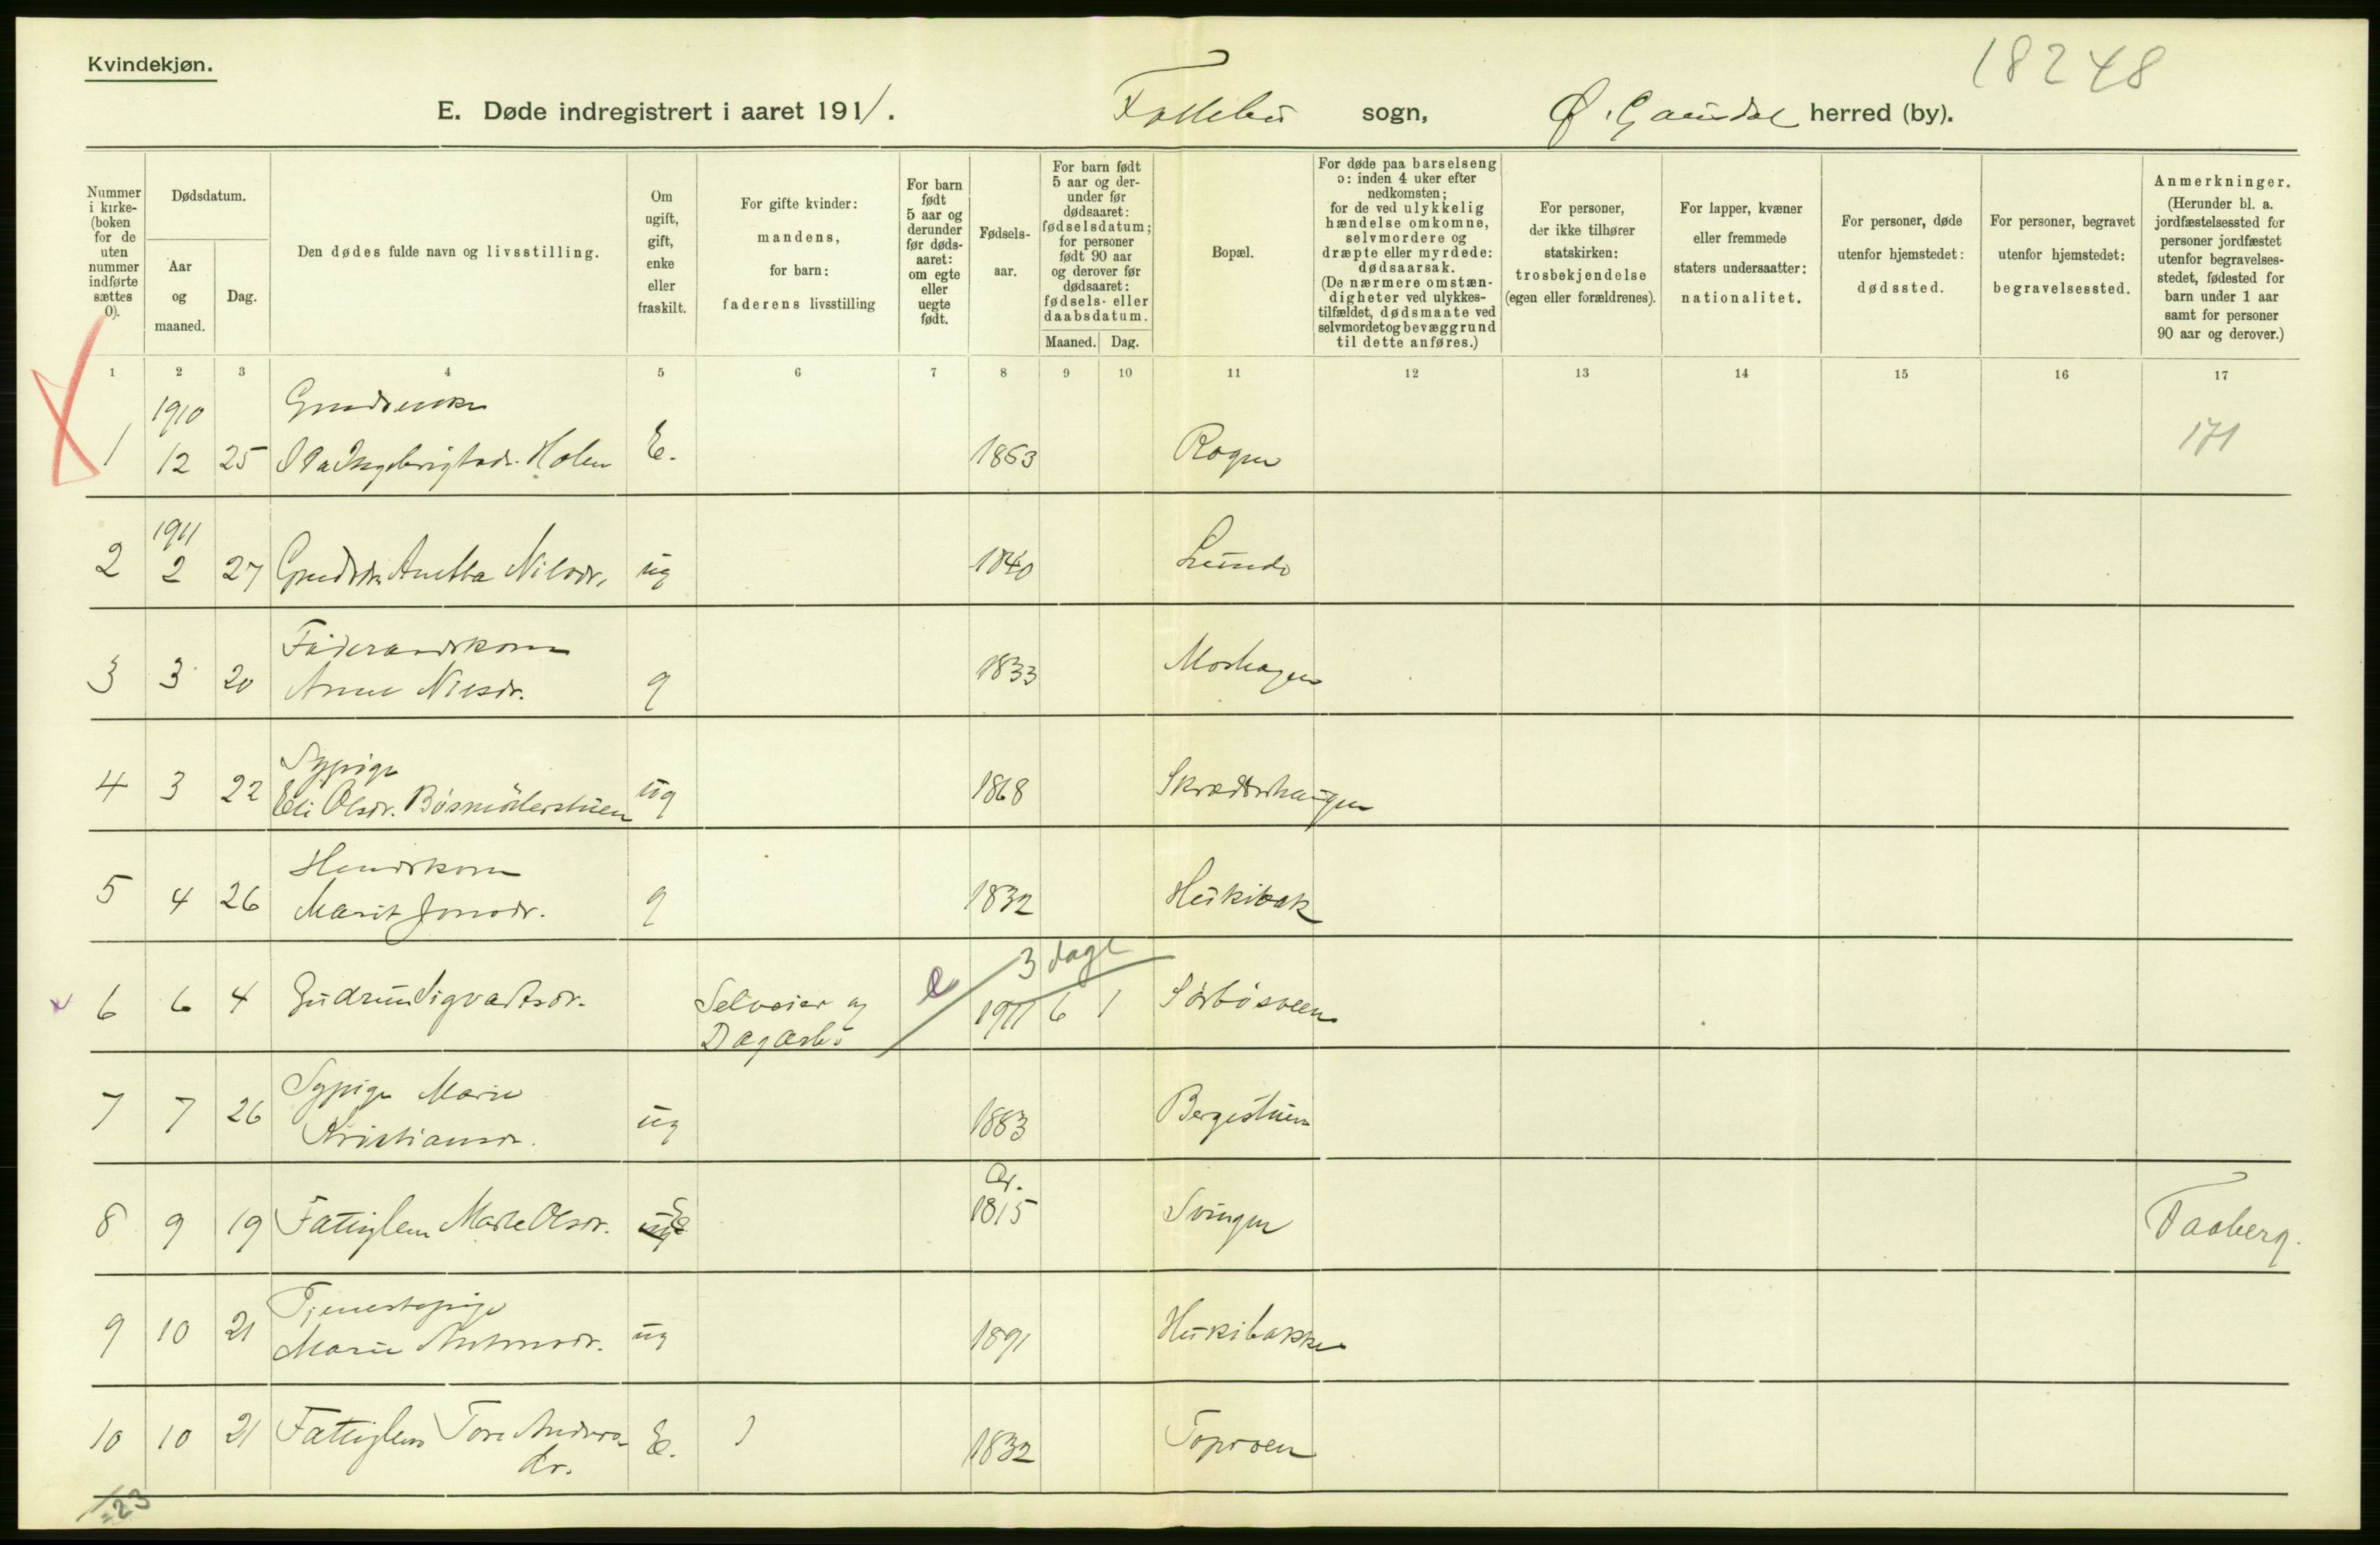 Kvindekjøn.
18248
E. Døde indregistrert i aaret 1911. Follebu sogn, Ø. Gausdal herred (by).
Nummer i kirkeboken for de uten nummer indførte sættes 0).
Dødsdatum.
Aar og maaned.
Dag.
Den dødes fulde navn og livsstilling.
Om ugift, gift, enke eller fraskilt.
For gifte kvinder: mandens, for barn: faderens livsstilling
For barn født 5 aar og derunder før dødsaaret: om egte eller uegte født.
Fødselsaar.
For barn født 5 aar og derunder før dødsaaret: fødselsdatum; for personer født 90 aar og derover før dødsaaret: fødsels- eller daabsdatum.
Maaned. Dag.
Bopæl.
For døde paa barselseng ɔ: inden 4 uker efter nedkomsten; for de ved ulykkelig hændelse omkomne, selvmordere og dræpte eller myrdede: dødsaarsak. (De nærmere omstændigheter ved ulykkestilfældet, dødsmaate ved selvmordet og bevæggrund til dette anføres.)
For personer, der ikke tilhører statskirken: trosbekjendelse (egen eller forældrenes).
For lapper, kvæner eller fremmede staters undersaatter: nationalitet.
For personer, døde utenfor hjemstedet: dødssted.
For personer, begravet utenfor hjemstedet: begravelsessted.
Anmerkninger. (Herunder bl. a. jordfæstelsessted for personer jordfæstet utenfor begravelsesstedet, fødested for barn under 1 aar samt for personer 90 aar og derover.)
1 2 3 4 5 6 7 8 9 10 11 12 13 14 15 16 17
1910
1 12 25 Ingebrigtsdr. Holen E. 1863 Rogne 171
1911
2 2 27 Anetta Nilsdr. ug 1840 Lunde
Føderaadskone
3 3 20 Anne Nilsdr. g 1833 Moshagen
Sypige
4 3 22 Eli Olsdr. Bøsmølerstuen ug 1868 Skrædderhaugen
5 4 26 Marit Jonsdr. g 1832 Hukibak
3 dage
6 6 4 Gudrun Sigvartsdr. Selveier og e 1911 6 1 Sørbøsveen
Sypige Marie
7 7 26 Kristiansdr. ug 1883 Bergestuen
Ar.
8 9 19 Fattiglem Marte Olsdr. E 1815 Svingen Faaberg.
Tjenestepige
9 10 21 Marie Antonsdr. ug 1891 Hukibakken
10 10 21 Fattiglem Tore Anders- E. 1832 Toproen
dr.
=23